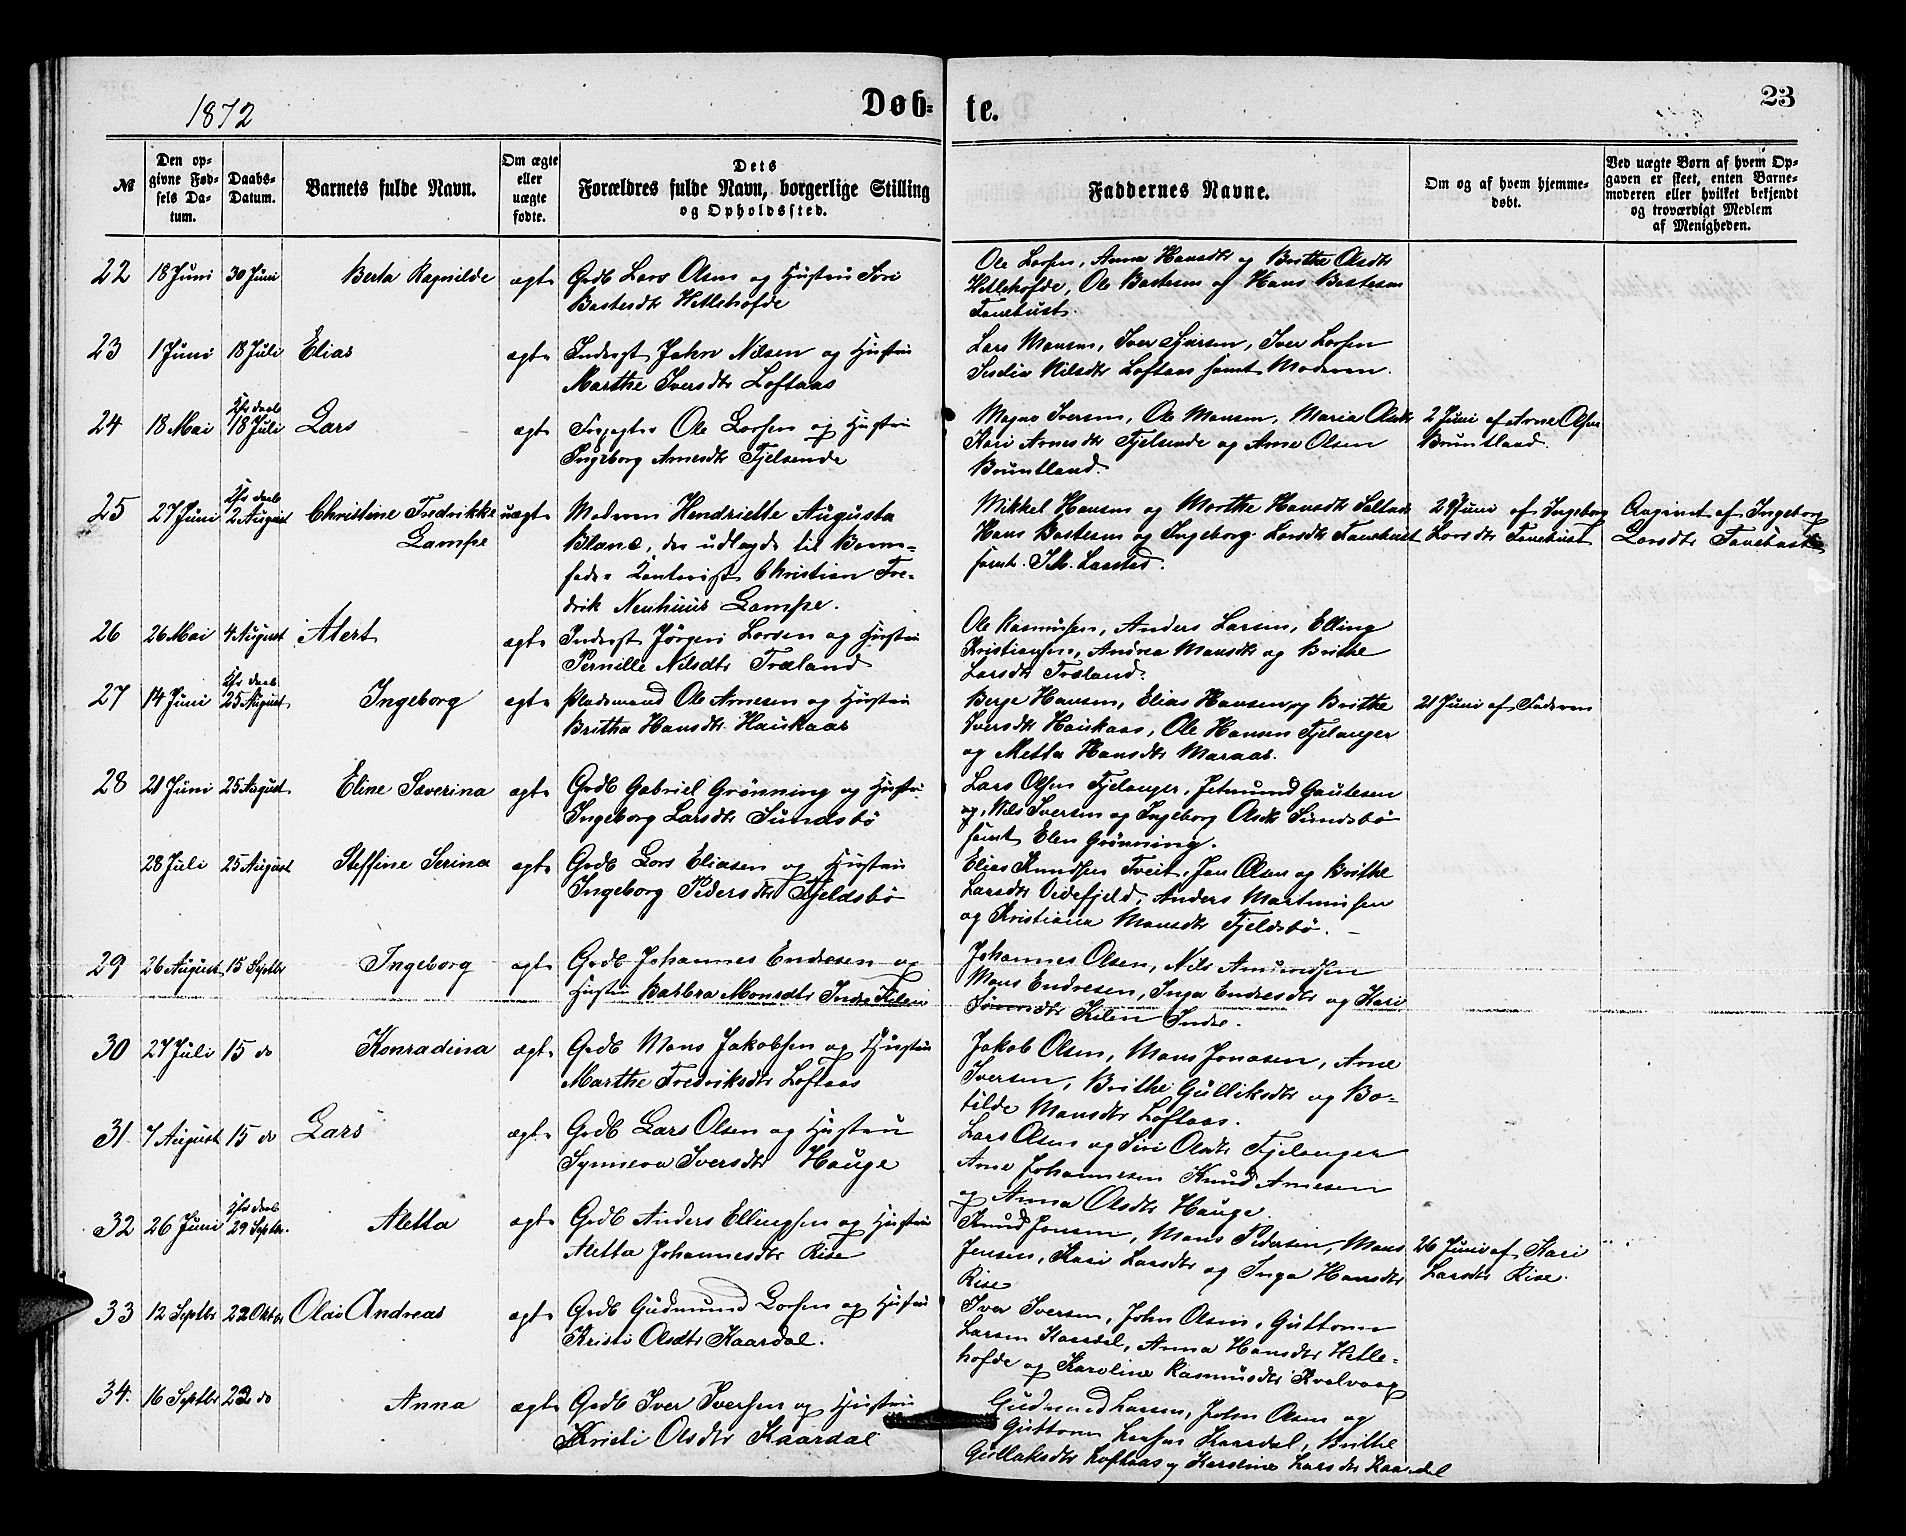 1872
Døb-
te.
23
№
Den op-
givne Fød-
sels Da-
tum.
Daabs-
Datum.
Barnets fulde Navn.
Om ægte
eller
uægte
fødte.
Dets
Forældres fulde Navn, borgerlige Stilling
og Opholdssted.
Faddernes Navne.
Om og af hvem hjemme-
døbt.
Ved uægte Børn af hvem Op-
gaven er skeet, enten Barne-
moderen eller hvilket bekjendt
og troværdigt Medlem
af Menigheden.
22 18 Juni 30 Juni Berta Ragnilde ægte Grdb Lars Olsen og Hustru Siri
Bastesdtr Hetlehofde
Ole Larsen, Anna Hansdtr og Brithe Olsdtr
Hetlehofde, Ole Bastesen og Hans Bastesen
Tanebust.
23 1 Juni 18 Juli Elias ægte Inderst John Nilsen og Hustru
Marthe Iversdtr Loftaas
Lars Monsen, Iver Larsen
Nilsdtr Loftaas samt Moderen.
24 18 Mai 18 Juli Lars ægte Ole Larsen og Hustru
Ingeborg Arnesdtr Fjelsende
Magne Iversen, Ole Monsen, Maria Olsdtr
Kari Arnesdtr Fjelsende og Arne Olsen
Bruntland.
2 Juni af Arne Olsen
Bruntland.
25 27 Juni 2 August Christine Fredrikke uægte Moderen Henriette Augusta
Lampe
Blanc, der udlagde til Barne-
fader Kontorist Christian Fre-
drik Neuhuus Lampe.
Mikkel Hansen og Marthe Hansdtr
Hans Bastesen og Ingeborg Larsdtr Tanebust
samt
29 Juni af Ingeborg
Larsdtr Tanebust
Angivet af Ingeborg
Larsdtr Tanebust
26 26 Mai 4 August Alert ægte Inderst Jørgen Larsen og Hustru
Pernille Nilsdtr Træland
Ole Rasmussen, Anders Larsen, Elling
Kristiansen, Andrea Monsdtr og Brithe
Larsdtr Træland.
27 14 Juni 25 August Ingeborg ægte Pladsmand Ole Arnesen og Hustru
Britha Hansdtr Haukaas
Berge Hansen, Elias Hansen og Brithe
Iversdtr Haukaas, Ole Hansen Fjelanger
og Metta Hansdtr Maraas.
21 Juni af Faderen
28 21 Juni 25 August Eline Severina ægte Grdb Gabriel Grønning og Hustru
Ingeborg Larsdtr Sundsbø
Lars Olsen Fjelanger, Jetmund Gautesen
og, Nils Iversen og Ingeborg Olsdtr Sundsbø
samt Elen Grønning.
28 Juli 25 August Steffine Serina ægte Grdb Lars Eliasen og Hustru
Ingeborg Pedersdtr Fjeldsbø
Elias Knudsen Tveit, Jan Olsen og Brithe
Larsdtr Videfjeld, Anders Martinussen
og Kristiana Monsdtr Fjeldsbø.
29 26 August 15 Septbr Ingeborg ægte Grdb Johannes Endresen og
Hustru Barbra Monsdtr Indre Kilen
Johannes Olsen, Nils Amundsen
Mons Endresen, Inga Endresdtr og Kari
Simonsdtr Kilen Indre.
30 27 Juli 15 do Konradina ægte Grdb Mons Jakobsen og Hustru
Marthe Fredriksdtr Loftaas
Jakob Olsen, Mons Jonasen, Arne
Iversen, Brithe Gulliksdtr og Bo-
tilde Monsdtr Loftaas.
31. 7 August 15 do Lars ægte Grdb Lars Olsen og Hustru
Synneva Iversdtr Hauge
Lars Olsen og Siri Olsdtr Fjelanger
Arne Johannesen Knud Arnesen
og Anna Olsdtr Hauge.
32 26 Juni 29 Septbr. Aletta ægte Grdb Anders Ellingsen og Hustru
Aletta Johannesdtr Rise
Knud Jonsen, Mons Pedersen, Mons
Jensen, Kari Larsdtr og Inga Hansdtr
Rise
26 Juni af Kari
Larsdtr Rise.
33 12 Septbr 22 Oktbr Olai Andreas ægte Grdb Gudmund Larsen og Hustru
Kristi Olsdtr Kaardal.
Iver Iversen, John Olsen, Guttorm
Larsen Kaardal, Anna Hansdtr Hetle-
hofde og Karoline Rasmusdtr Kvalvaag
34. 16 Septbr 22 do Anna ægte Grdb Iver Iversen og Hustru
Kristi Olsdtr Kaardal
Gudmund Larsen, John Olsen og
Guttorm Larsen Kaardal, Brithe
Gullaksdtr Loftaas og Karoline Larsdtr Kaardal